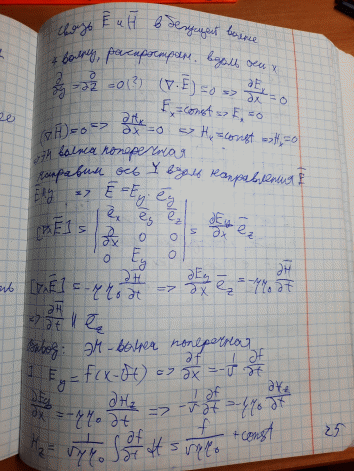 связь E̅ и H̅ в бегущей волне
+ волну, распростран. вдоль оси x
∂/∂y = ∂/∂z = 0 (?) (∇·E̅) = 0 => ∂Eₓ/∂x = 0
Eₓ = const => Eₓ = 0
(∇H̅) = 0 => ∂Hₓ/∂x = 0 => Hₓ = const => Hₓ = 0
=> ЭМ волна поперечная
направим ось Y вдоль направления E̅
E̅ ∥ y => E̅ = E_y e̅_y
[∇×E̅] = | e̅ₓ e̅_y e̅_z | = ∂E_y/∂x e̅_z
∂/∂x 0 0
0 E_y 0
[∇×E̅] = -μμ₀ ∂H̅/∂t => ∂E_y/∂x e̅_z = -μμ₀ ∂H̅/∂t
=> ∂H̅/∂t ∥ e̅_z
Вывод: ЭМ-волна поперечная
I. E_y = f(x-vt) => ∂f/∂x = -1/v ∂f/∂t
∂E_y/∂x = -μμ₀ ∂H_z/∂t => -1/v ∂f/∂t = -μμ₀ ∂H_z/∂t
H_z = 1/(vμμ₀) ∫ ∂f/∂t dt = f/(vμμ₀) + const
25